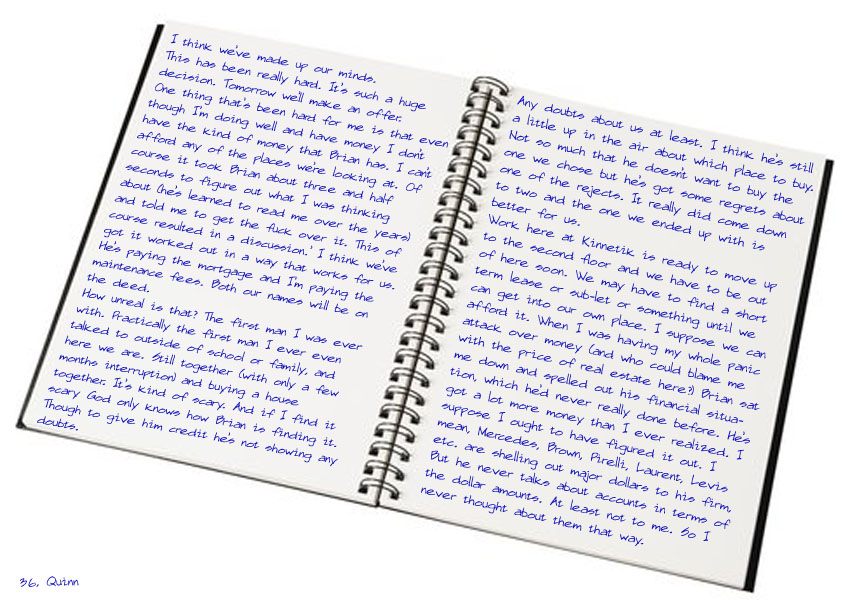 I think we've made up our minds.
This has been really hard. It's such a huge
decision. Tomorrow we'll make an offer.
One thing that's been hard for me is that even
though I'm doing well and have money I don't
have the kind of money that Brian has. I can't
afford any of the places we're looking at. Of
course it took Brian about three and half
seconds to figure out what I was thinking
about (he's learned to read me over the years)
and told me to get the fuck over it. This of
course resulted in a discussion.' I think we've
got it worked out in a way that works for us.
He's paying the mortgage and I'm paying the
maintenance fees. Both our names will be on
the deed.
How unreal is that? The first man I was ever
with. Practically the first man I ever even
talked to outside of school or family, and
here we are. Still together (with only a few
months interruption) and buying a house
together. It's kind of scary. And if I find it
scary God only knows how Brian is finding it.
Though to give him credit he's not showing any
doubts.
Any doubts about us at least. I think he's still
a little up in the air about which place to buy.
Not so much that he doesn't want to buy the
one we chose but he's got some regrets about
one of the rejects. It really did come down
to two and the one we ended up with is
better for us.
Work here at Kinnetik is ready to move up
to the second floor and we have to be out
of here soon. We may have to find a short
term lease or sub-let or something until we
can get into our own place. I suppose we can
afford it. When I was having my whole panic
attack over money (and who could blame me
with the price of real estate here?) Brian sat
me down and spelled out his financial situa-
tion, which he'd never really done before. He's
got a lot more money than I ever realized. I
suppose I ought to have figured it out. I
mean, Mercedes, Brown, Pirelli, Laurent, Levis
etc. are shelling out major dollars to his firm,
But he never talks about accounts in terms of
the dollar amounts. At least not to me. So I
never thought about them that way.
36, Quinn